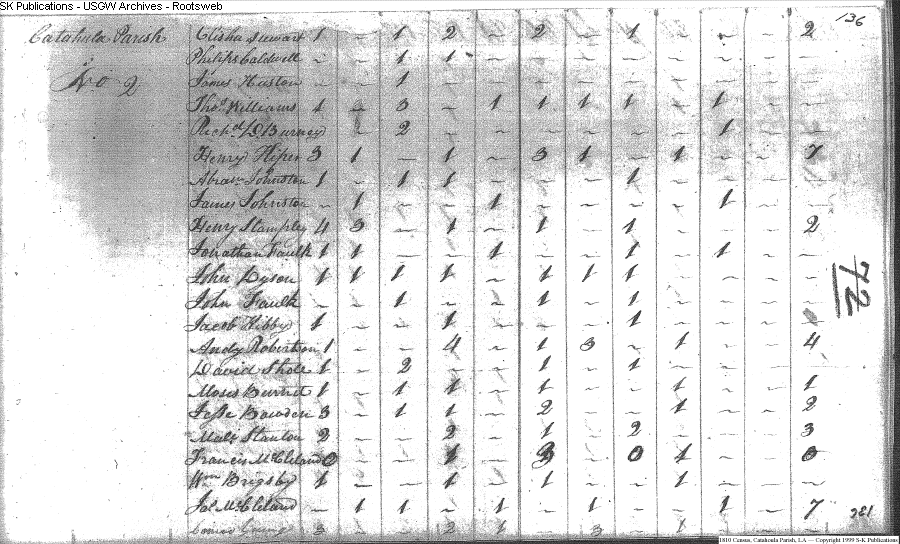 SK Publications - USGW Archives - Rootsweb
136
Catahula Parish Elisha Stewart 1 ~ 1 2 ~ 2 ~ 1 ~ ~ ~ 2
Philips Caldwell ~ ~ 1 1 ~ ~ ~ ~ ~ ~ ~ ~
No 2 James Huston ~ ~ 1 ~ ~ ~ ~ ~ ~ ~ ~ ~
Thos Williams 1 ~ 3 ~ 1 1 1 1 ~ 1 ~ ~
Richd D. Burney ~ 2 ~ ~ ~ ~ ~ ~ 1 ~ ~
Henry Hiper 3 1 – 1 ~ 3 1 ~ 1 ~ ~ 7
Abram Johnston 1 ~ 1 1 ~ ~ ~ 1 ~ ~ ~ ~
James Johnston ~ 1 ~ ~ 1 ~ ~ ~ ~ 1 ~ ~
Henry Stampley 4 3 ~ 1 ~ 1 ~ 1 ~ ~ ~ 2
Jonathan Faulk 1 1 ~ ~ 1 ~ ~ 1 ~ 1 ~ ~
John Dyson 1 1 1 1 ~ 1 1 1 ~ ~ ~ ~
John Faulk ~ ~ 1 ~ ~ 1 ~ 1 ~ ~ ~ ~
Jacob Hibby 1 ~ ~ 1 ~ ~ ~ 1 ~ ~ ~
Andy Robertson 1 ~ ~ 4 ~ 1 3 ~ 1 ~ ~ 4
David Shole 1 ~ 2 ~ ~ 1 ~ 1 ~ ~ ~ ~
Moses Burnet 1 ~ 1 1 ~ 1 ~ ~ 1 ~ ~ 1
Jesse Bowden 3 ~ 1 1 ~ 2 ~ ~ 1 ~ ~ 2
Stanton 2 ~ ~ 2 ~ 1 ~ 2 ~ ~ ~ 3
Francis McCleland 0 ~ ~ 1 ~ 3 ~ 0 1 ~ ~ 0
Wm Brigsby 1 ~ ~ 1 ~ 1 ~ ~ 1 ~ ~ ~
Jas McCleland ~ 1 1 ~ 1 ~ 1 ~ ~ 1 ~ 7
3 ~ ~ 2 1 ~ 3 ~ 1 ~ ~ ~
72
221
1810 Census, Catahoula Parish, LA — Copyright 1999 S-K Publications